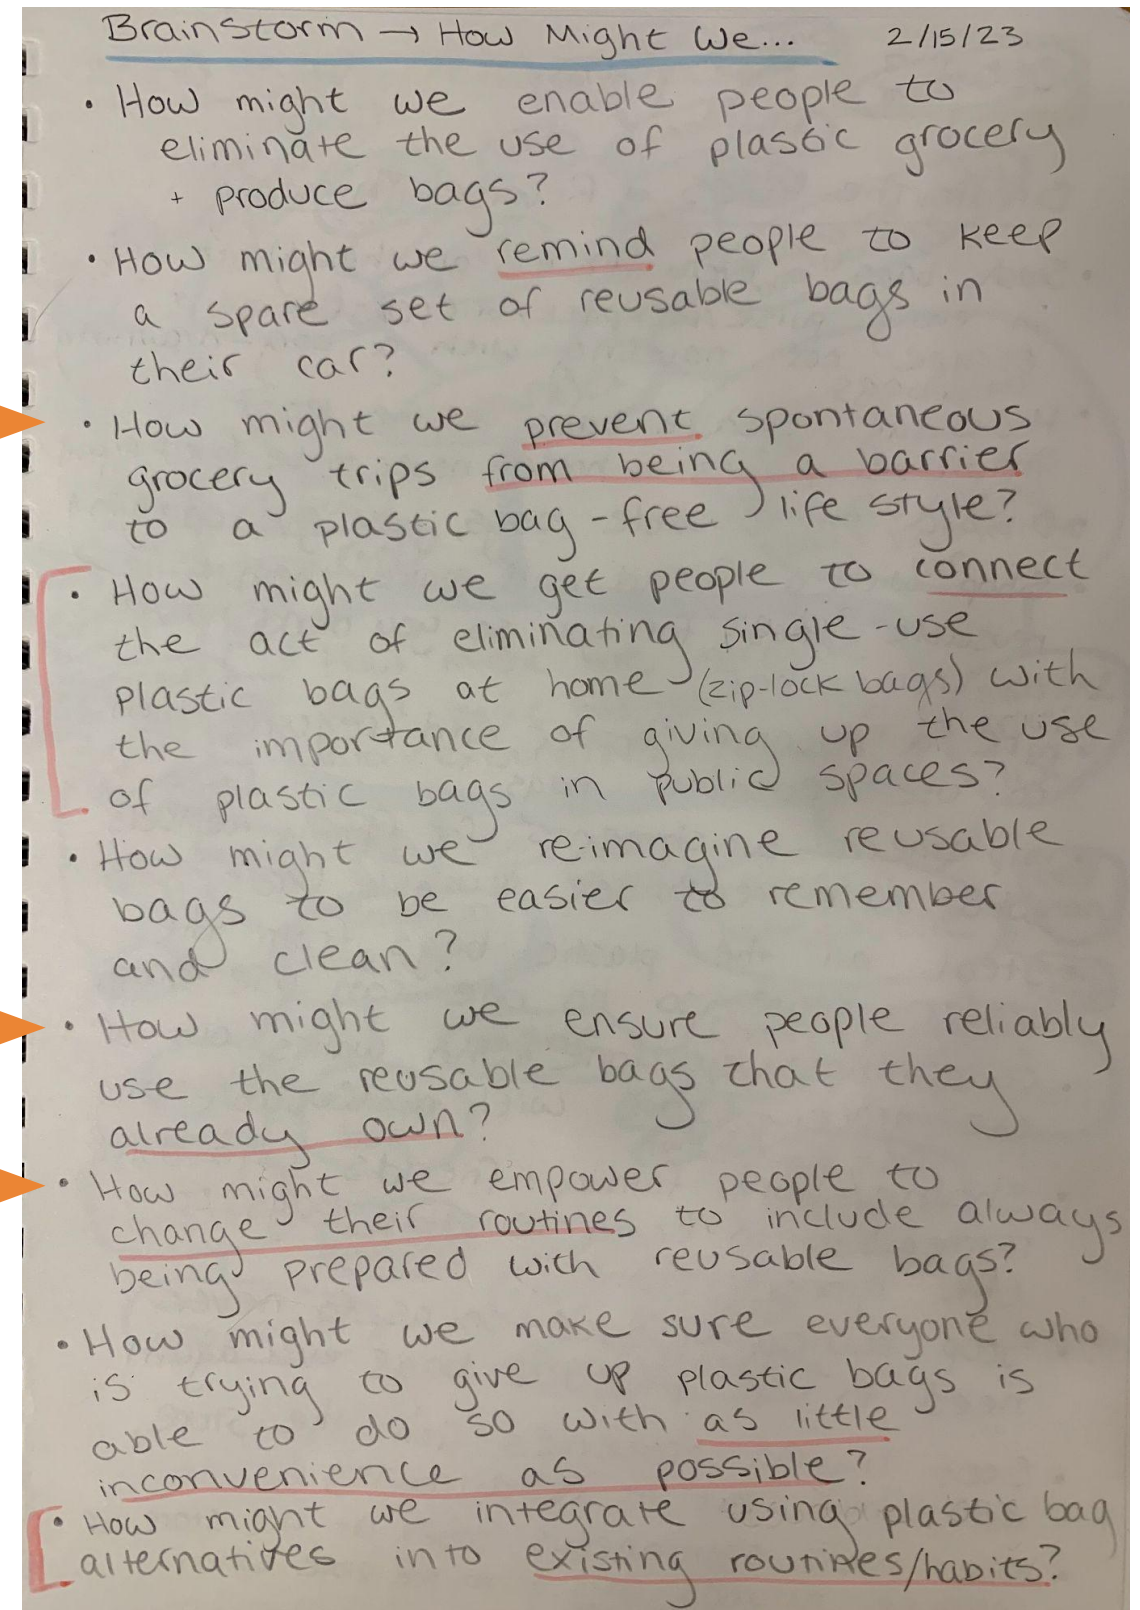 Brainstorm → How Might We... 2/15/23
• How might we enable people to
eliminate the use of plastic grocery
+ produce bags?
• How might we remind people to keep
a spare set of reusable bags in
their car?
• How might we prevent spontaneous
grocery trips from being a barrier
to a plastic bag-free life style?
• How might we get people to connect
the act of eliminating single-use
plastic bags at home (zip-lock bags) with
the importance of giving up the use
of plastic bags in public spaces?
• How might we re-imagine reusable
bags to be easier to remember
and clean?
• How might we ensure people reliably
use the reusable bags that they
already own?
• How might we empower people to
change their routines to include always
being prepared with reusable bags?
• How might we make sure everyone who
is trying to give up plastic bags is
able to do so with as little
inconvenience as possible?
• How might we integrate using plastic bag
alternatives into existing routines/habits?